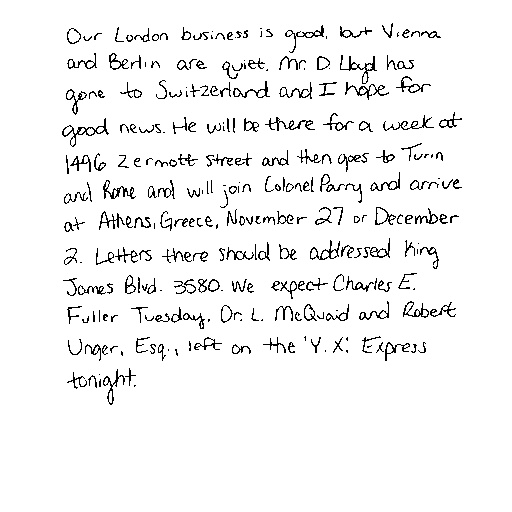 Our London business is good, but Vienna
and Berlin are quiet. Mr. D. Lloyd has
gone to Switzerland and I hope for
good news. He will be there for a week at
1496 Zermott Street and then goes to Turin
and Rome and will join Colonel Parry and arrive
at Athens, Greece, November 27 or December
2. Letters there should be addressed King
James Blvd. 3580. We expect Charles E.
Fuller Tuesday. Dr. L. McQuaid and Robert
Unger, Esq., left on the 'Y.X.' Express
tonight.